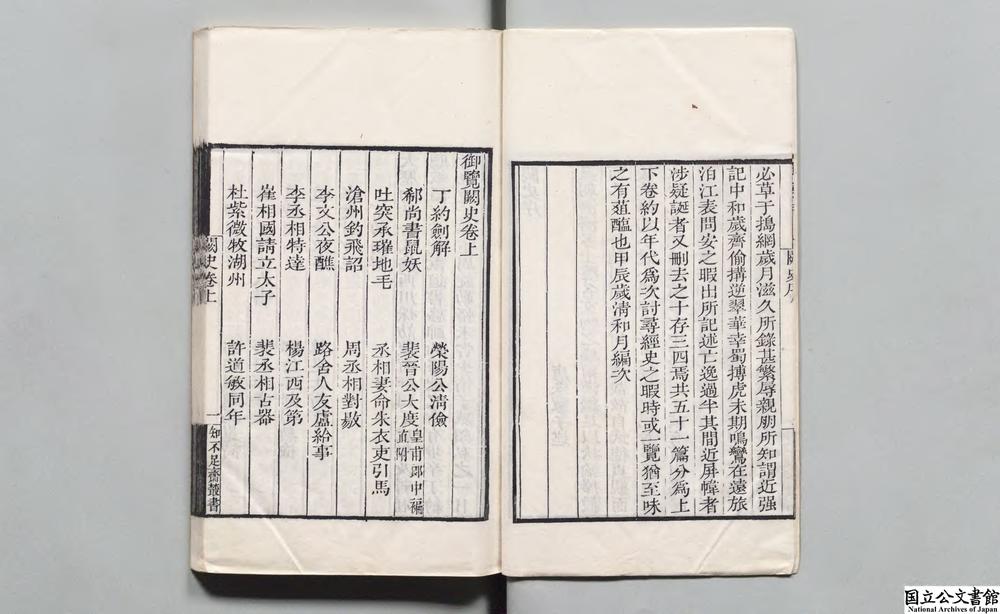 必草于搗網歲月滋久所錄甚繁辱親朋所知謂近强
記中和歲齊偷搆逆翠華幸蜀搏虎未期鳴鸞在遠旅
泊江表問安之暇出所記述亡逸過半其間近屏幃者
涉疑誕者又刪去之十存三四焉共五十一篇分為上
下卷約以年代為次討尋經史之暇時或一覽猶至味
之有葅醢也甲辰歲淸和月編次
御覽闕史卷上
丁約劍解 滎陽公清儉
郗尚書鼠妖 裴晉公大度皇甫郎中褊直附
吐突承璀地毛 丞相妻命朱衣吏引馬
滄州釣飛詔 周丞相對敭
李文公夜醮 路舍人友盧給事
李丞相特達 楊江西及第
崔相國請立太子 裴丞相古器
杜紫微牧湖州 許道敏同年
闕史卷上 一 知不足齋叢書
国立公文書館
National Archives of Japan